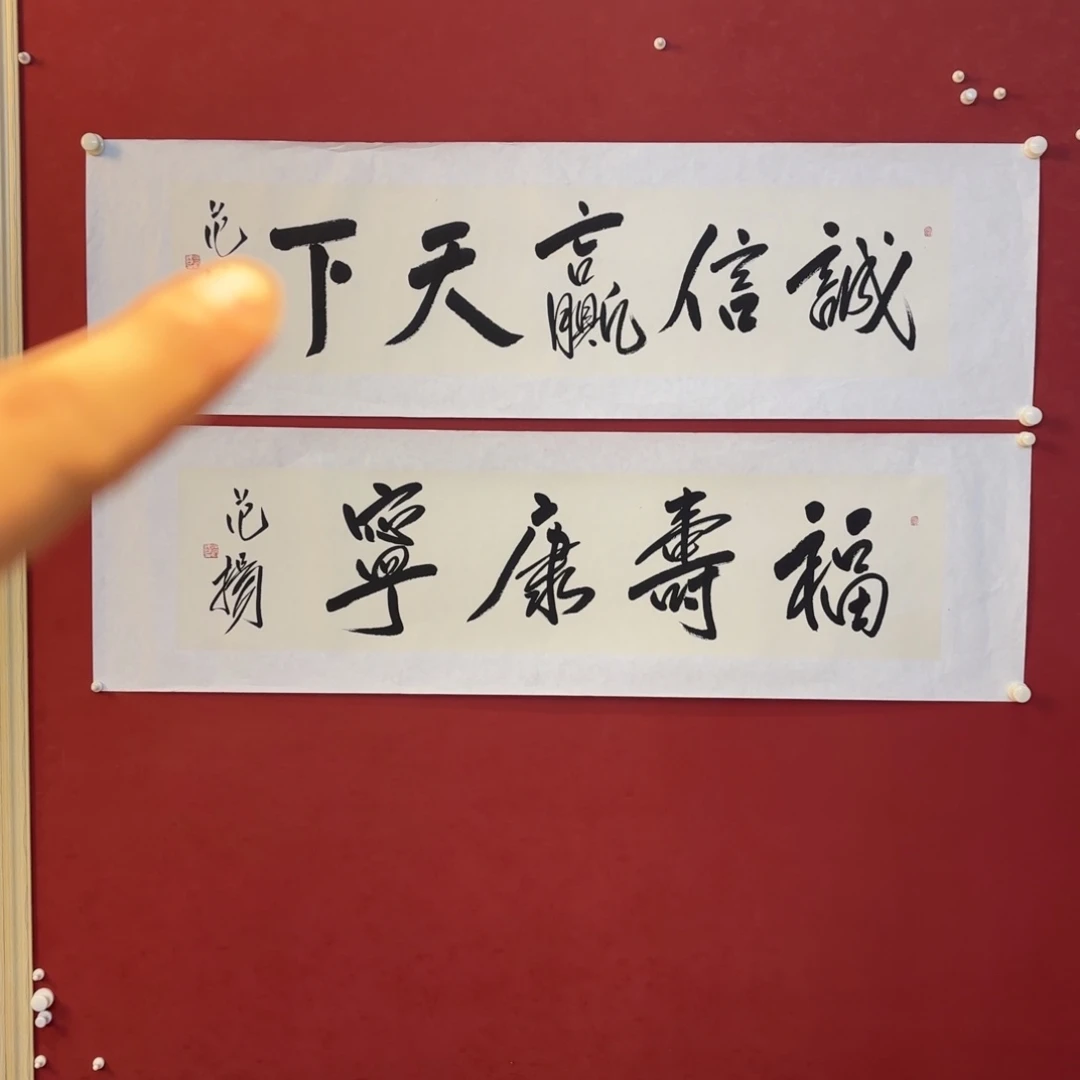 誠信贏天下
范
福壽康寧
范揚